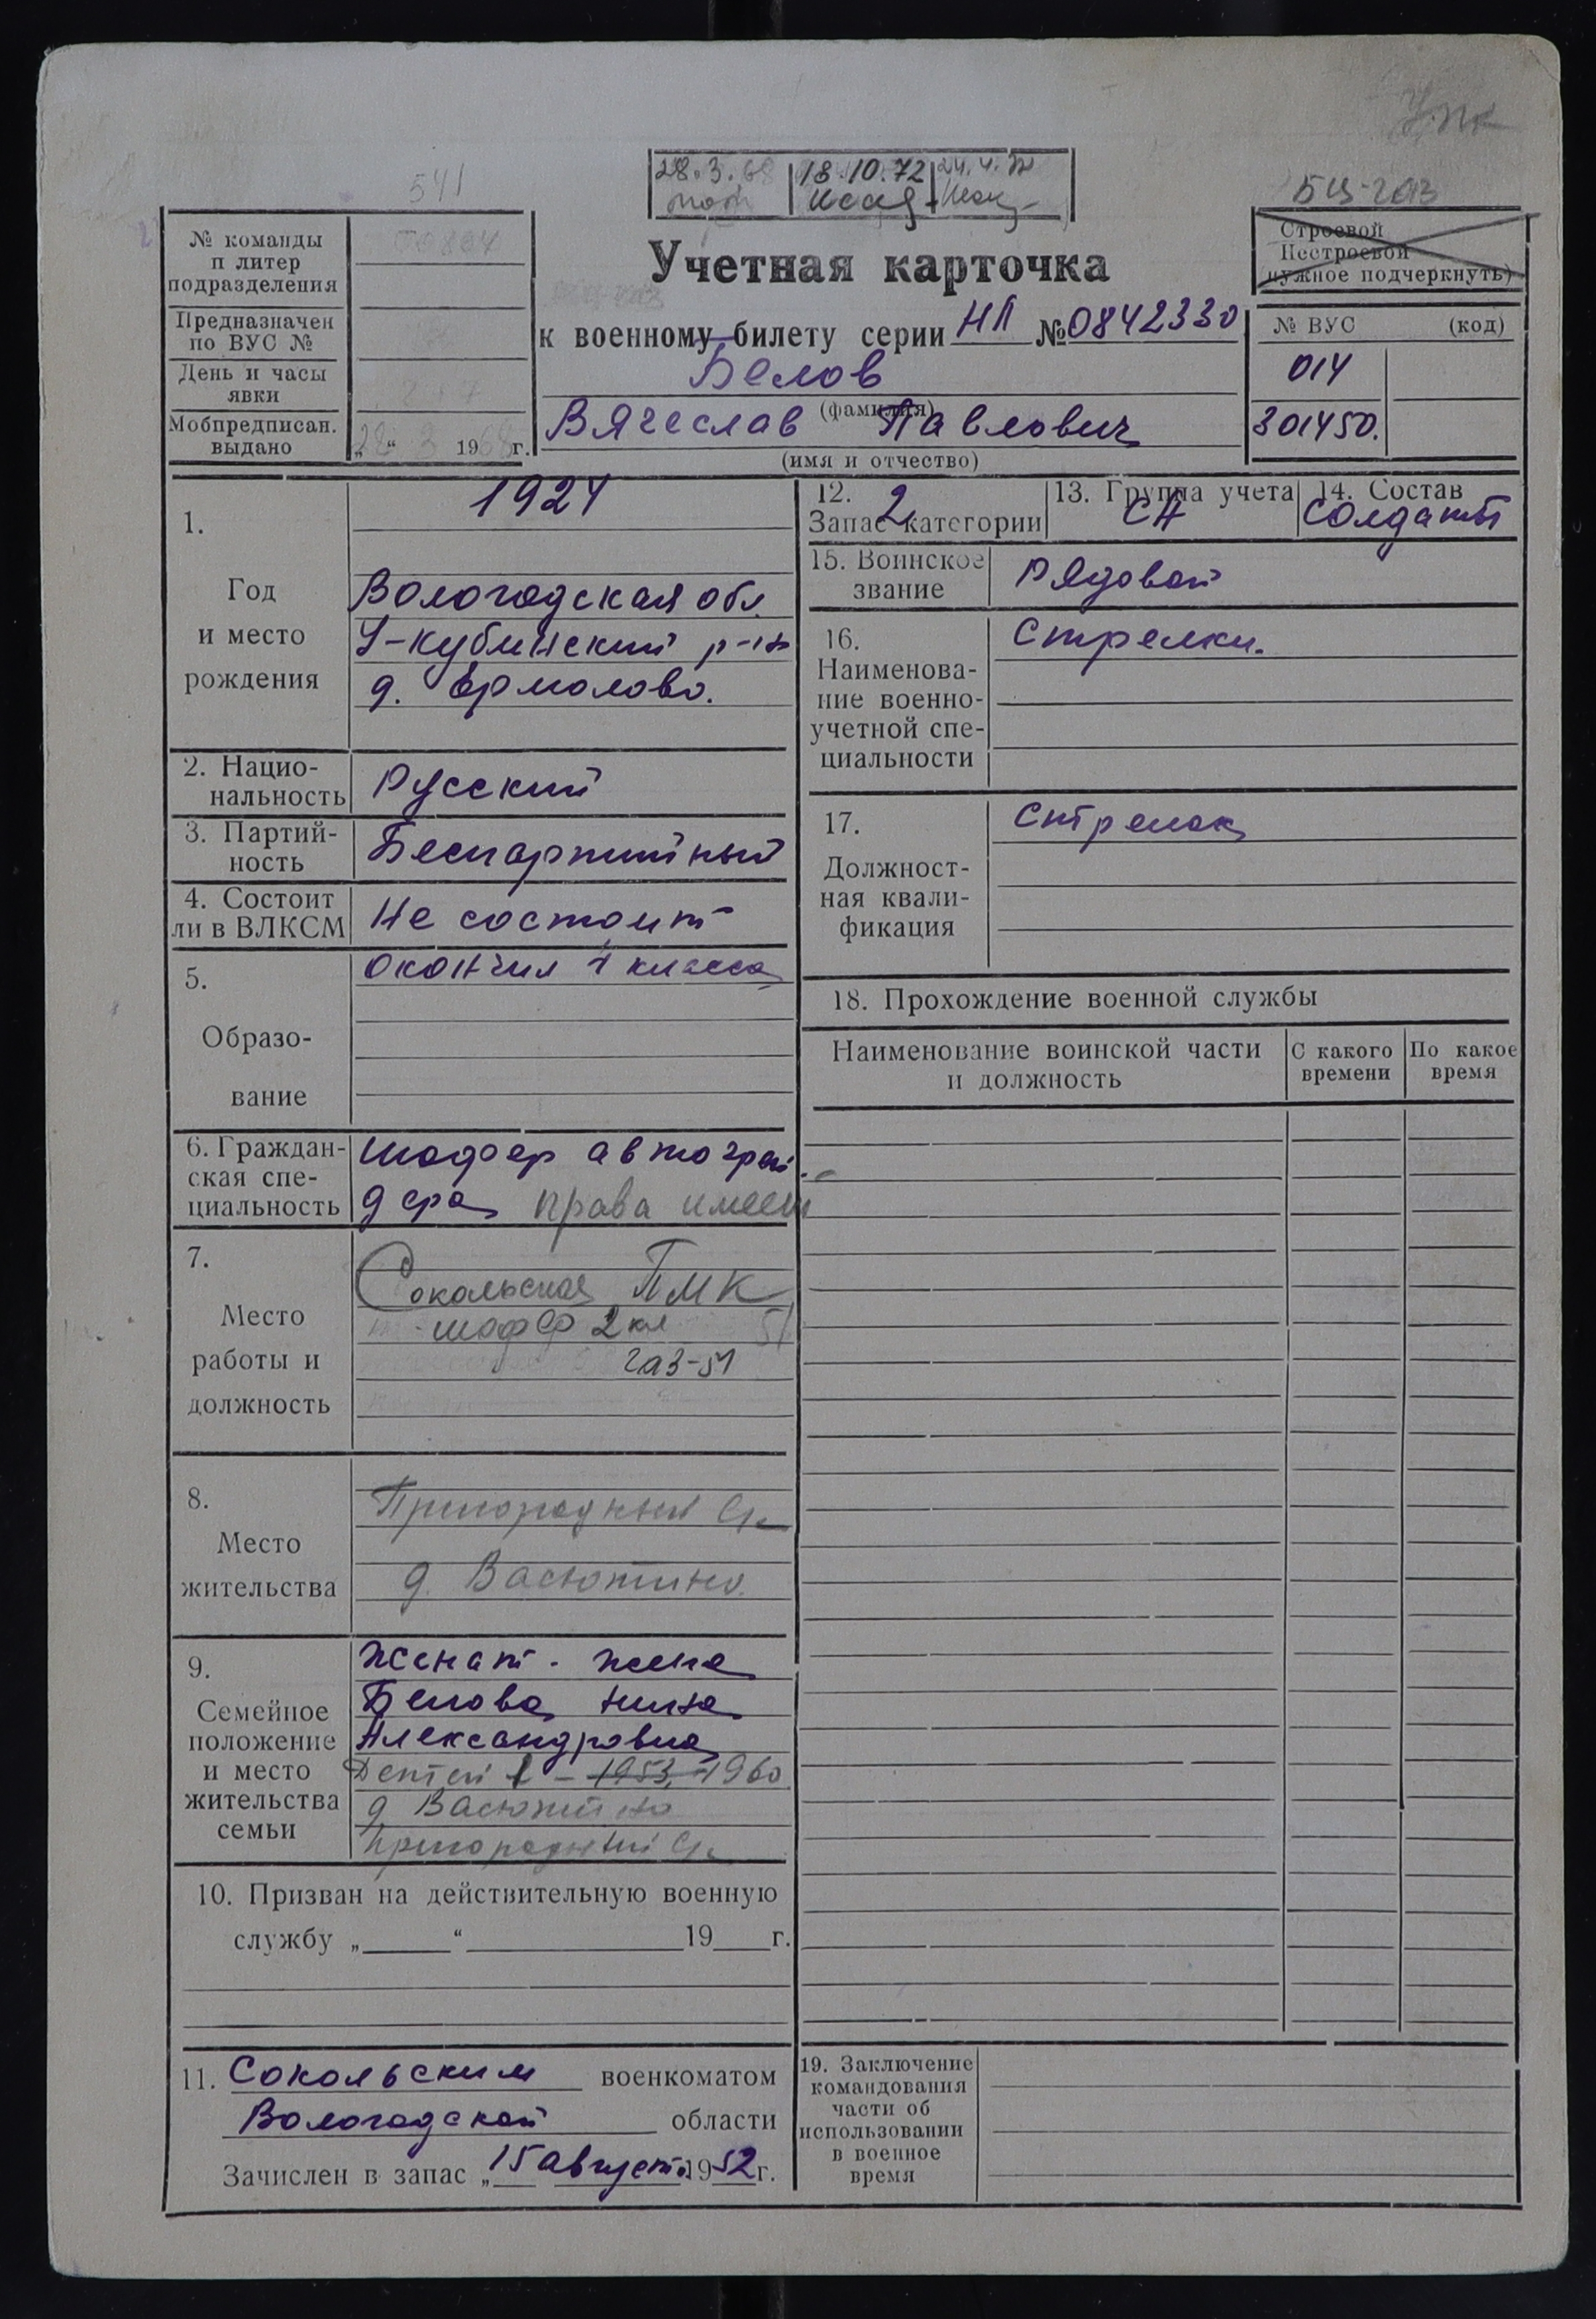 541
28.3.68
18.10.72
24.4.
БЦ-213
№ команды
п литер
подразделения
Предназначен
по ВУС №
День и часы
явки
Мобпредписан.
выдано
„28“ 3 1968г.
Учетная карточка
к военному билету серии НЛ №0842330
Белов
(фамилия)
Вячеслав Павлович
(имя и отчество)
Строевой
Нестроевой
(нужное подчеркнуть)
№ ВУС (код)
014
301450.
1.
Год
и место
рождения
1924
Вологодская обл.
У-Кубинский р-н
д. Ермолово.
2. Нацио-
нальность
Русский
3. Партий-
ность
Беспартийный
4. Состоит
ли в ВЛКСМ
Не состоит
5.
Образо-
вание
окончил 4 класса
6. Граждан-
ская спе-
циальность
Шофер автогрей-
дера права имеет
7.
Место
работы и
должность
Сокольская ПМК
шофер 2 кл
газ-51
8.
Место
жительства
Пригородный
д. Васютино.
9.
Семейное
положение
и место
жительства
семьи
Женат - жена
Белова Нина
Александровна
Детей 1 - 1953, 1960
д Васютино
Пригородный
10. Призван на действительную военную
службу „ “ 19 г.
11. Сокольским военкоматом
Вологодской области
Зачислен в запас „15 августа 1952г.
12. 2
Запас категории
13. Группа учета
СА
14. Состав
Солдаты
15. Воинское
звание
Рядовой
16.
Наименова-
ние военно-
учетной спе-
циальности
Стрелки.
17.
Должност-
ная квали-
фикация
Стрелок
18. Прохождение военной службы
Наименование воинской части
и должность
С какого
времени
По какое
время
19. Заключение
командования
части об
использовании
в военное
время